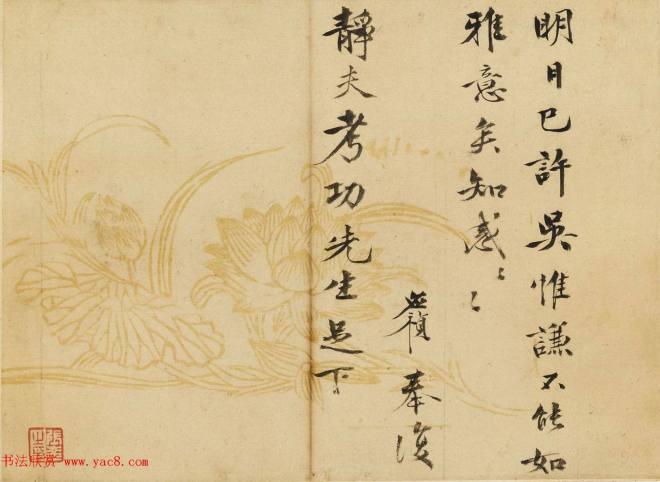 明日已許吳惟謙不能如
雅意矣知感〻〻
奉復
靜夫考功先生足下
书法欣赏 www.yac8.com